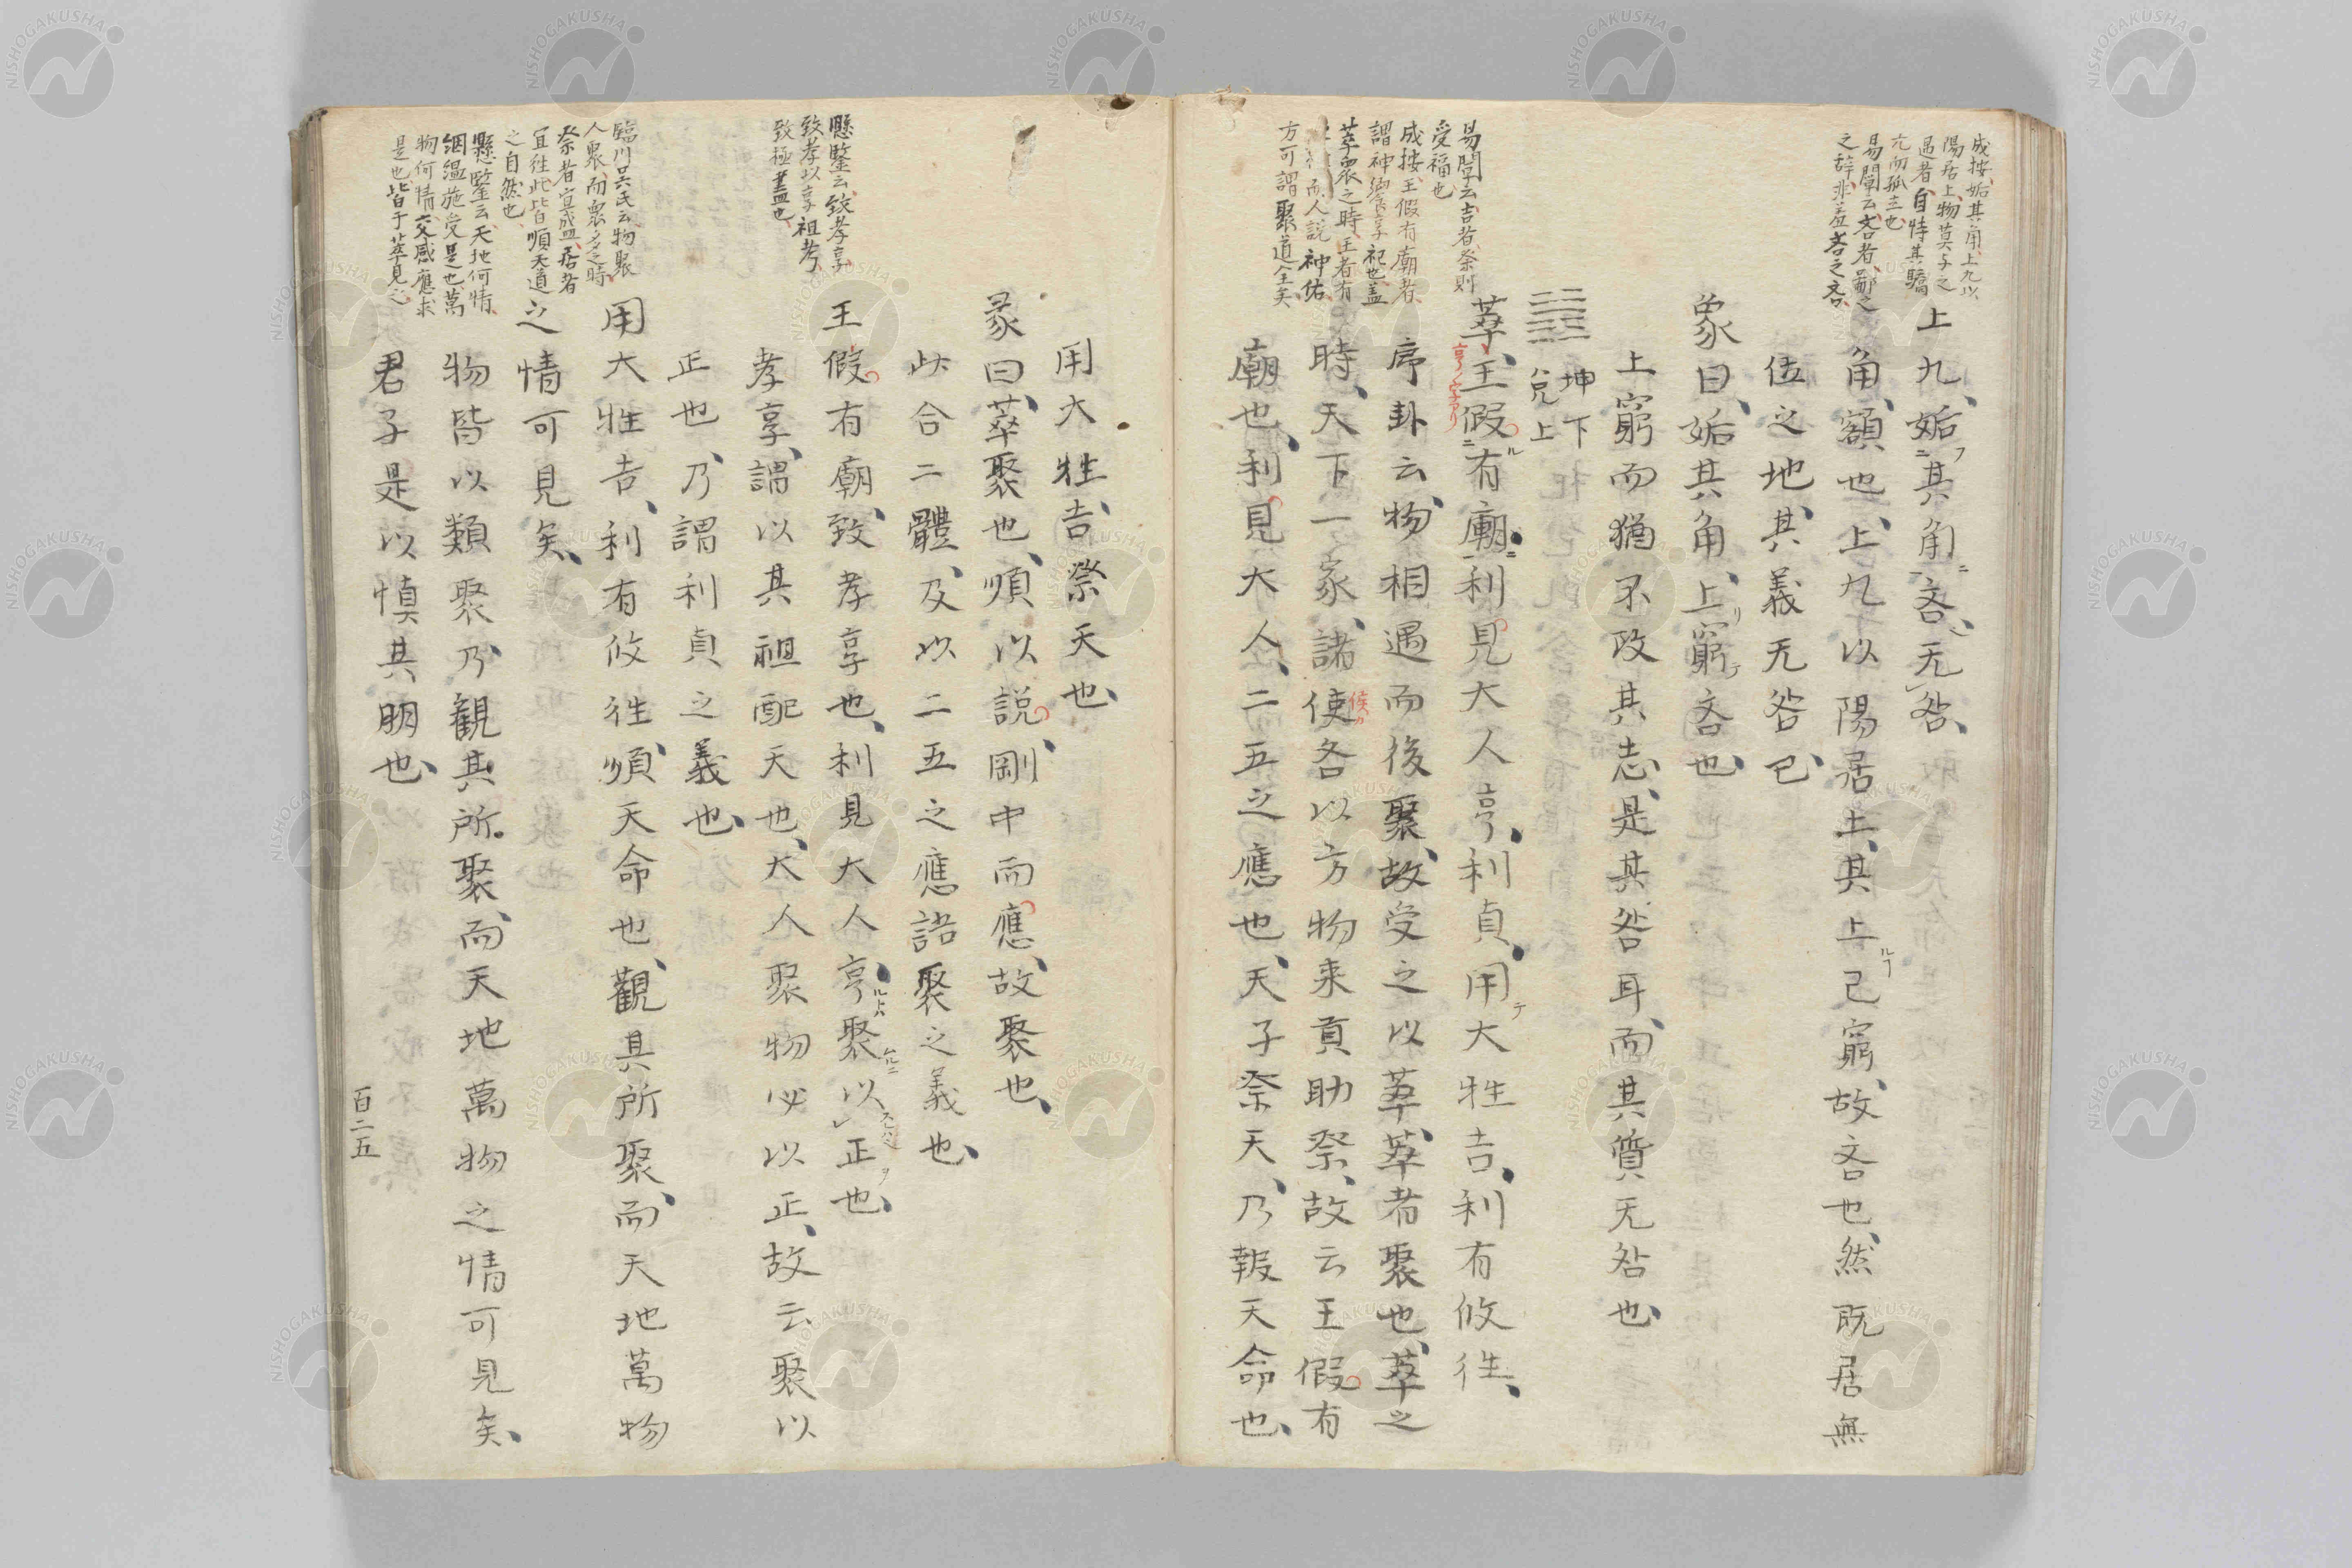 成按、姤其角、上九以
陽居上、物莫与之
遇者、自恃其驕
亢而孤立也
易闡云、吝者、鄙之
之辞、非羞吝之吝、
上九、姤其角、吝、无咎、
角、額也、上九以陽居上、其上已窮、故吝也、然既居無
位之地、其義无咎已、
象曰、姤其角、上窮吝也、
上窮而猶不改其志、是其咎耳、而其質无咎也、
坤下
兌上
易闡云、吉者、祭則
受福也、
成按、王假有廟者、
謂神饗享祀也、蓋
萃衆之時、王者有
而人説神佑、
方可謂聚道全矣、
萃、王假有廟、利見大人亨、利貞、用大牲吉、利有攸往、
亨ノ字アリ
序卦云、物相遇而後聚、故受之以萃、萃者聚也、萃之
時、天下一家、諸使各以方物来貢助祭、故云王假有
侯カ
廟也、利見大人、二五之應也、天子祭天、乃報天命也、
用大牲吉、祭天也、
彖曰、萃聚也、順以説、剛中而應、故聚也、
此合二體、及以二五之應、語聚之義也、
懸鑒云、致孝享、
致孝以享祖考、
致極盡也、
王假有廟、致孝享也、利見大人亨、聚以正也、
孝享、謂以其祖配天也、大人聚物必以正、故云聚以
正也、乃謂利貞之義也、
臨川吳氏云、物聚
人衆、而衆多之時、
祭者宜盛、居者
宜往、此皆順天道
之自然也、
用大牲吉、利有攸往、順天命也、觀其所聚、而天地萬物
之情可見矣、
懸鑒云、天地何情、
絪縕施受是也、萬
物何情、交感應求
是也、皆于萃見之、
物皆以類聚、乃觀其所聚、而天地萬物之情可見矣、
君子是以慎其朋也、
百二五
NISHOGAKUSHA